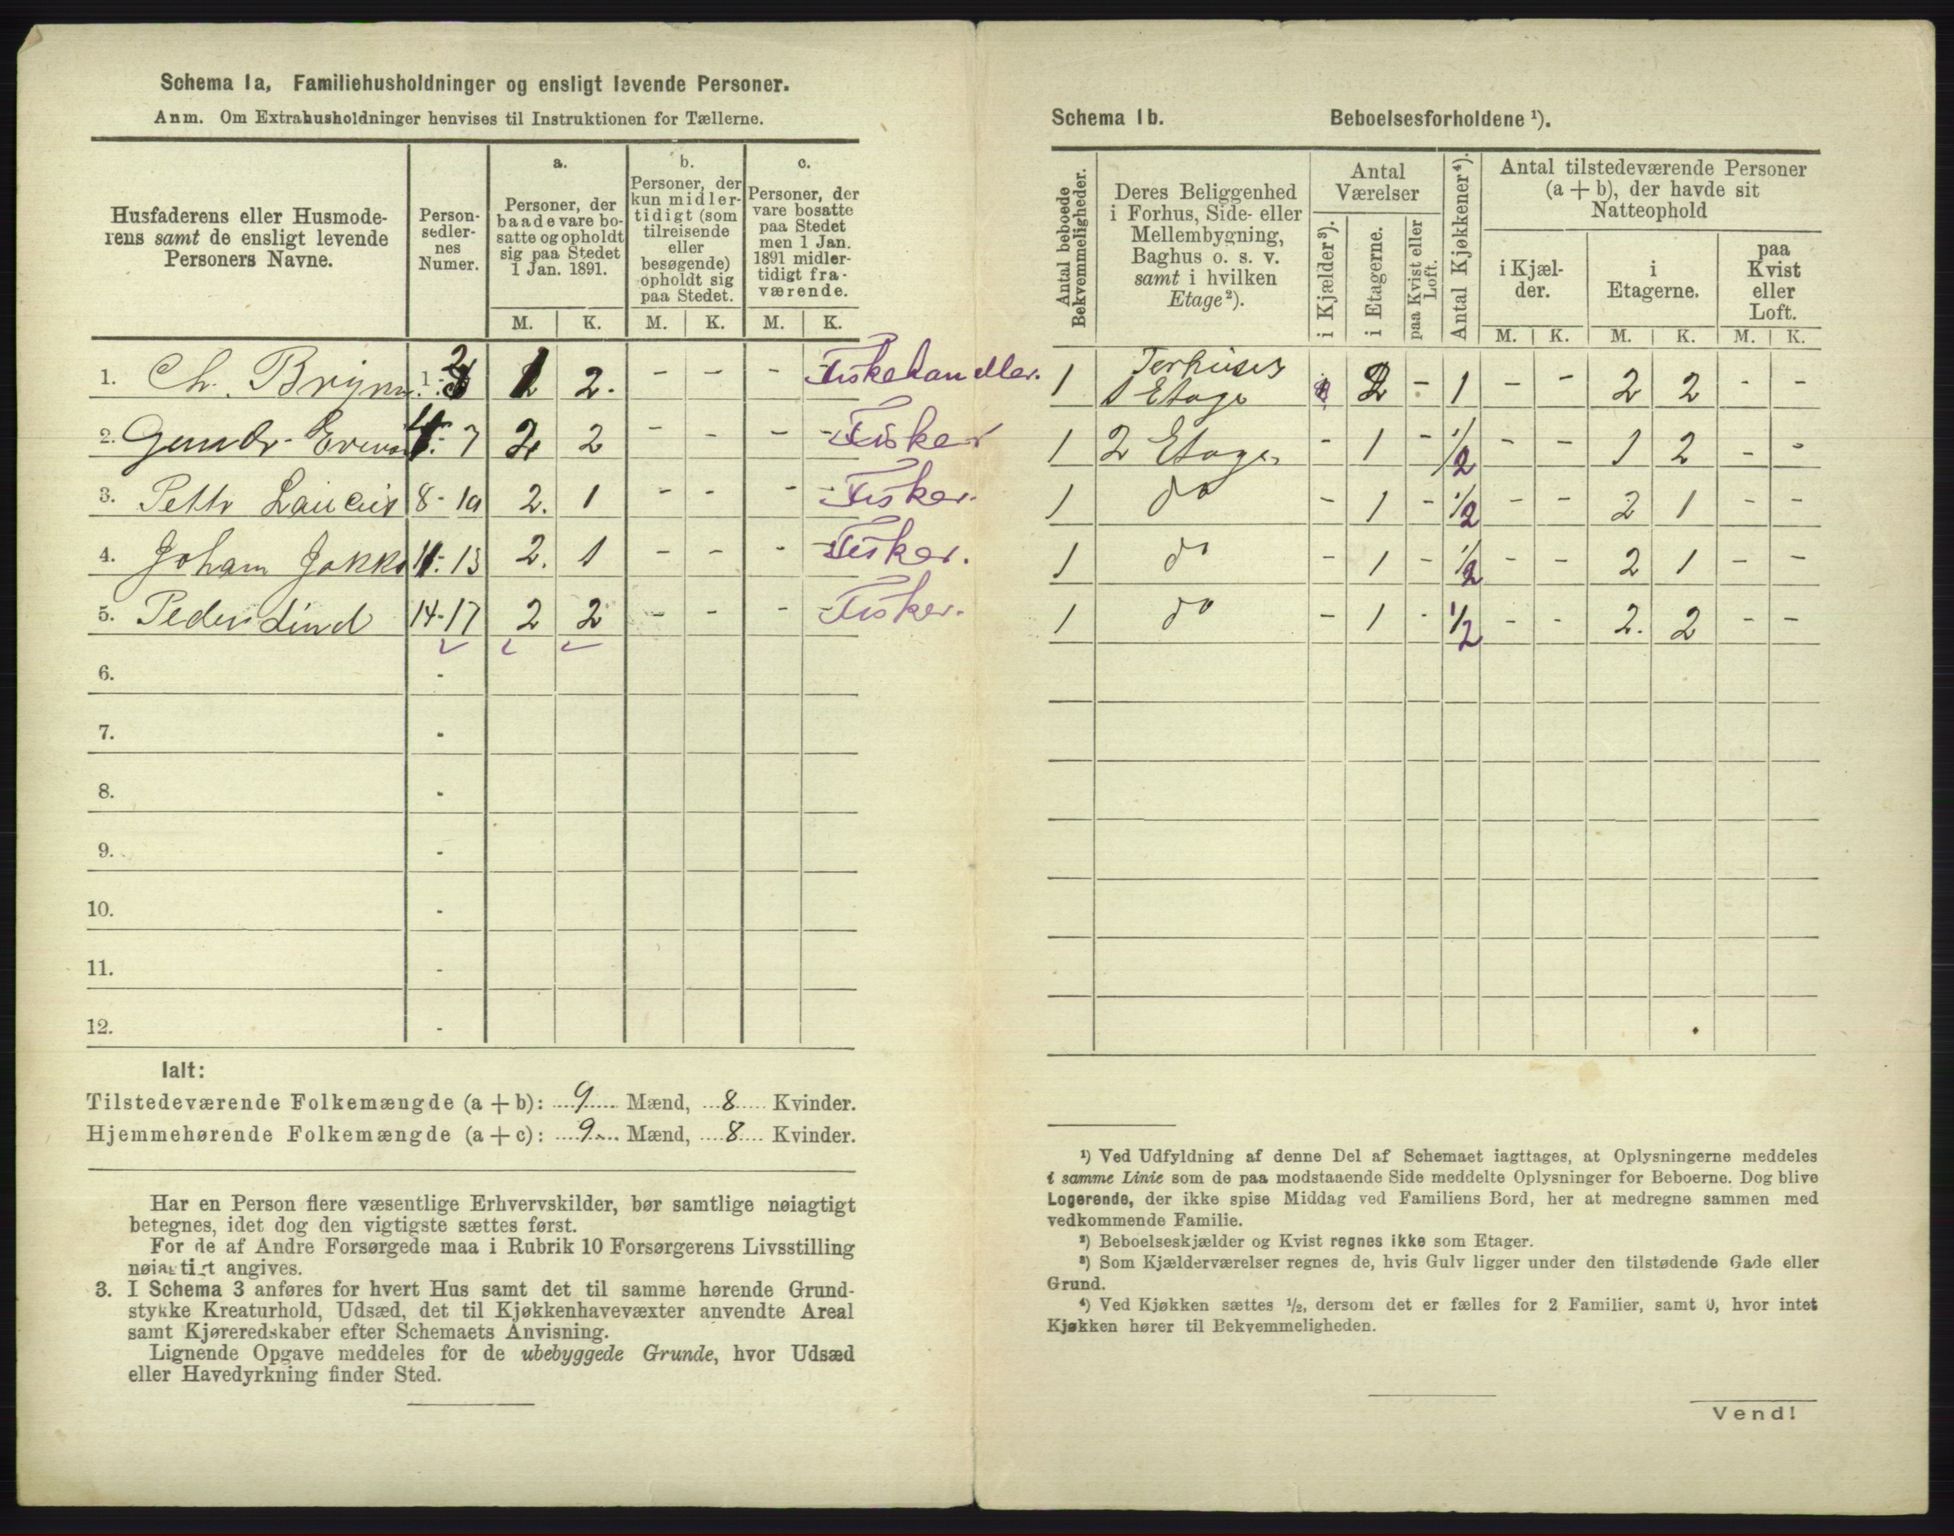 Schema 1a, Familiehusholdninger og ensligt levende Personer.
Anm. Om Extrahusholdninger henvises til Instruktionen for Tællerne.
Husfaderens eller Husmode-
rens samt de ensligt levende
Personers Navne.
Person-
sedler-
nes
Numer.
a.
Personer, der
baade vare bo-
satte og opholdt
sig paa Stedet
1 Jan. 1891.
b.
Personer, der
kun midler-
tidigt (som
tilreisende
eller
besøgende)
opholdt sig
paa Stedet.
c.
Personer, der
vare bosatte
paa Stedet
men 1 Jan.
1891 midler-
tidigt fra-
værende.
M. K. M. K. M. K.
1. Ch. Brynn 1- 2 2. - - - Fiskehandler.
2. - 7 2 2 - - - - Fisker
3. Pettr 8-10 2. 1 - - - - Fisker.
4. Joham 11-13 2. 1 - - - - Fisker.
5. Peder Lind 14-17 2 2 - - - - Fisker.
6. -
7. -
8. -
9. -
10. -
11. -
12. -
Ialt:
Tilstedeværende Folkemængde (a + b): 9 Mænd, 8 Kvinder.
Hjemmehørende Folkemængde (a + c): 9 Mænd, 8 Kvinder.
Har en Person flere væsentlige Erhvervskilder, bør samtlige nøiagtigt
betegnes, idet dog den vigtigste sættes først.
For de af Andre Forsørgede maa i Rubrik 10 Forsørgerens Livsstilling
nøiagtigt angives.
3. I Schema 3 anføres for hvert Hus samt det til samme hørende Grund-
stykke Kreaturhold, Udsæd, det til Kjøkkenhavevæxter anvendte Areal
samt Kjøreredskaber efter Schemaets Anvisning.
Lignende Opgave meddeles for de ubebyggede Grunde, hvor Udsæd
eller Havedyrkning finder Sted.
Schema 1b. Beboelsesforholdene ¹).
Antal beboede
Bekvemmeligheder.
Deres Beliggenhed
i Forhus, Side- eller
Mellembygning,
Baghus o. s. v.
samt i hvilken
Etage²).
Antal
Værelser
i Kjælder³).
i Etagerne.
paa Kvist eller
Loft.
Antal Kjøkkener⁴).
Antal tilstedeværende Personer
(a + b), der havde sit
Natteophold
i Kjæl-
der.
i
Etagerne.
paa
Kvist
eller
Loft.
M. K. M. K. M. K.
1 Forhuses
1 Etage 2 - 1 - - 2 2 - -
1 2 Etage - 1 - 1/2 - - 1 2 - -
1 do - 1 - 1/2 - - 2 1 - -
1 do - 1 - 1/2 - - 2 1 - -
1 do - 1 - 1/2 - - 2. 2 - -
¹) Ved Udfyldning af denne Del af Schemaet iagttages, at Oplysningerne meddeles
i samme Linie som de paa modstaaende Side meddelte Oplysninger for Beboerne. Dog blive
Logerende, der ikke spise Middag ved Familiens Bord, her at medregne sammen med
vedkommende Familie.
²) Beboelseskjælder og Kvist regnes ikke som Etager.
³) Som Kjælderværelser regnes de, hvis Gulv ligger under den tilstødende Gade eller
Grund.
⁴) Ved Kjøkken sættes ½, dersom det er fælles for 2 Familier, samt 0, hvor intet
Kjøkken hører til Bekvemmeligheden.
Vend!